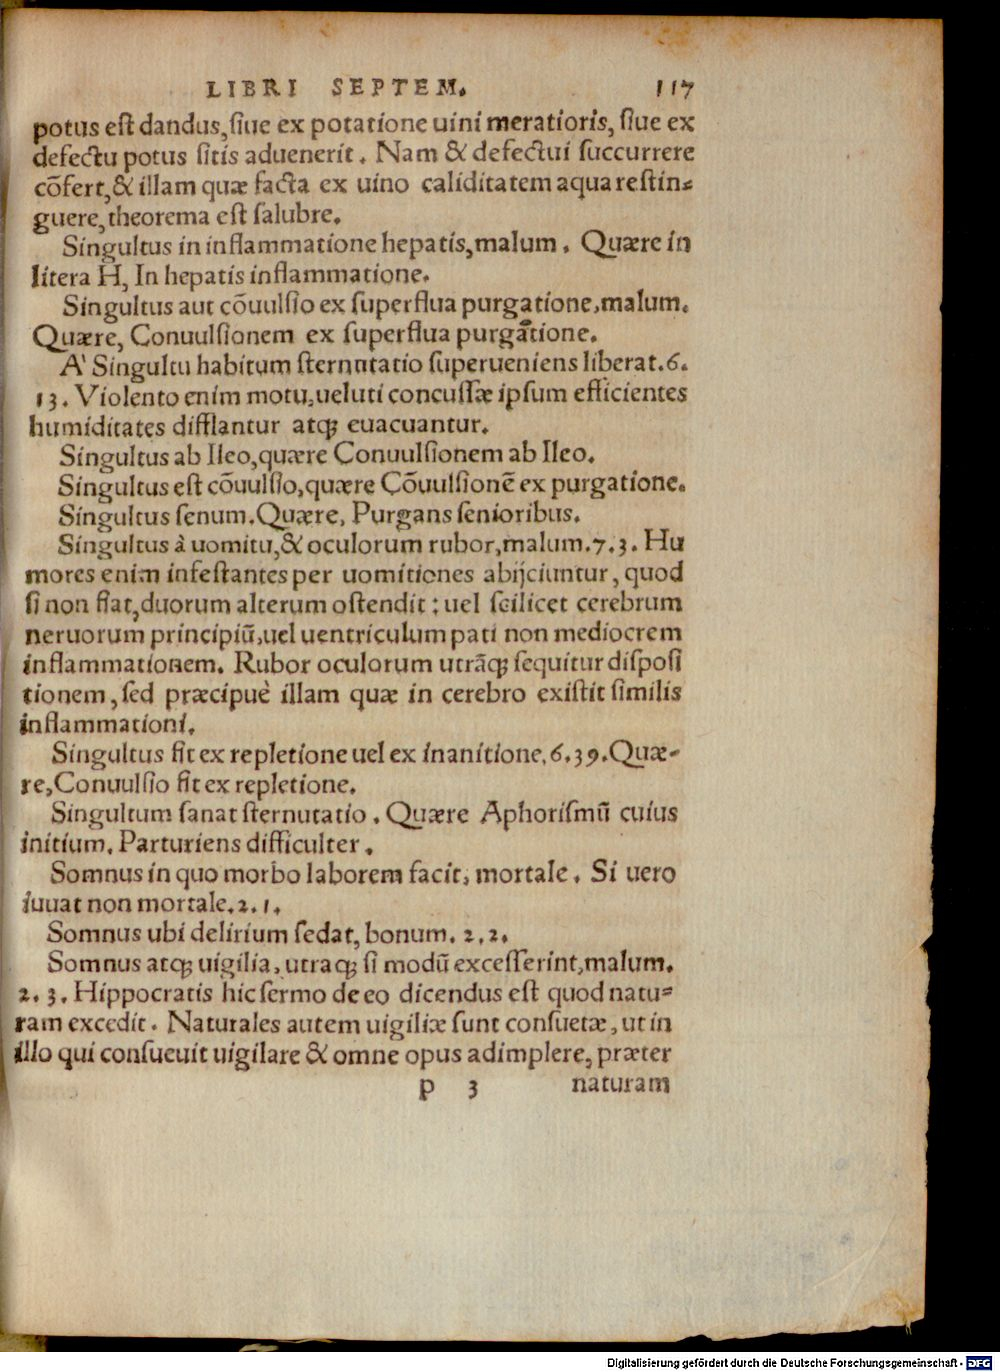 LIBRI SEPTEM. 117
potus est dandus, siue ex potatione uini meratioris, siue ex
defectu potus sitis aduenerit. Nam & defectui succurrere
cōfert, & illam quæ facta ex uino caliditatem aqua restin-
guere, theorema est salubre.
Singultus in inflammatione hepatis, malum. Quære in
litera H, In hepatis inflammatione.
Singultus aut cōuulsio ex superflua purgatione, malum.
Quære, Conuulsionem ex superflua purgatione.
A' Singultu habitum sternutatio superueniens liberat. 6.
13. Violento enim motu, ueluti concussæ ipsum efficientes
humiditates difflantur atq; euacuantur.
Singultus ab Ileo, quære Conuulsionem ab Ileo.
Singultus est cōuulsio, quære Cōuulsionē ex purgatione.
Singultus senum. Quære, Purgans senioribus.
Singultus à uomitu, & oculorum rubor, malum. 7. 3. Hu
mores enim infestantes per uomitiones abijciuntur, quod
si non fiat, duorum alterum ostendit: uel scilicet cerebrum
neruorum principiū, uel uentriculum pati non mediocrem
inflammationem. Rubor oculorum utrāq; sequitur disposi
tionem, sed præcipuè illam quæ in cerebro existit similis
inflammationi.
Singultus fit ex repletione uel ex inanitione, 6. 39. Quæ-
re, Conuulsio fit ex repletione.
Singultum sanat sternutatio. Quære Aphorismū cuius
initium, Parturiens difficulter.
Somnus in quo morbo laborem facit, mortale. Si uero
iuuat non mortale. 2. 1.
Somnus ubi delirium sedat, bonum. 2. 2.
Somnus atq; uigilia, utraq; si modū excesserint, malum.
2. 3. Hippocratis hic sermo de eo dicendus est quod natu-
ram excedit. Naturales autem uigiliæ sunt consuetæ, ut in
illo qui consueuit uigilare & omne opus adimplere, præter
p 3 naturam
Digitalisierung gefördert durch die Deutsche Forschungsgemeinschaft - DFG